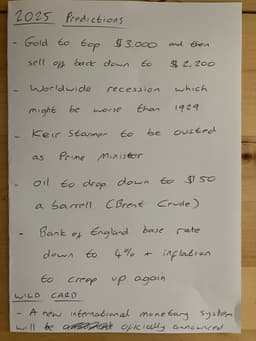 2025 Predictions
- Gold to top $3,000 and then
sell off back down to $2,200
- Worldwide recession which
might be worse than 1929
- Keir Starmer to be ousted
as Prime Minister
- oil to drop down to $50
a barrell (Brent Crude)
- Bank of England base rate
down to 4% + inflation
to creep up again
WILD CARD
- A new international monetary system
will be officially announced